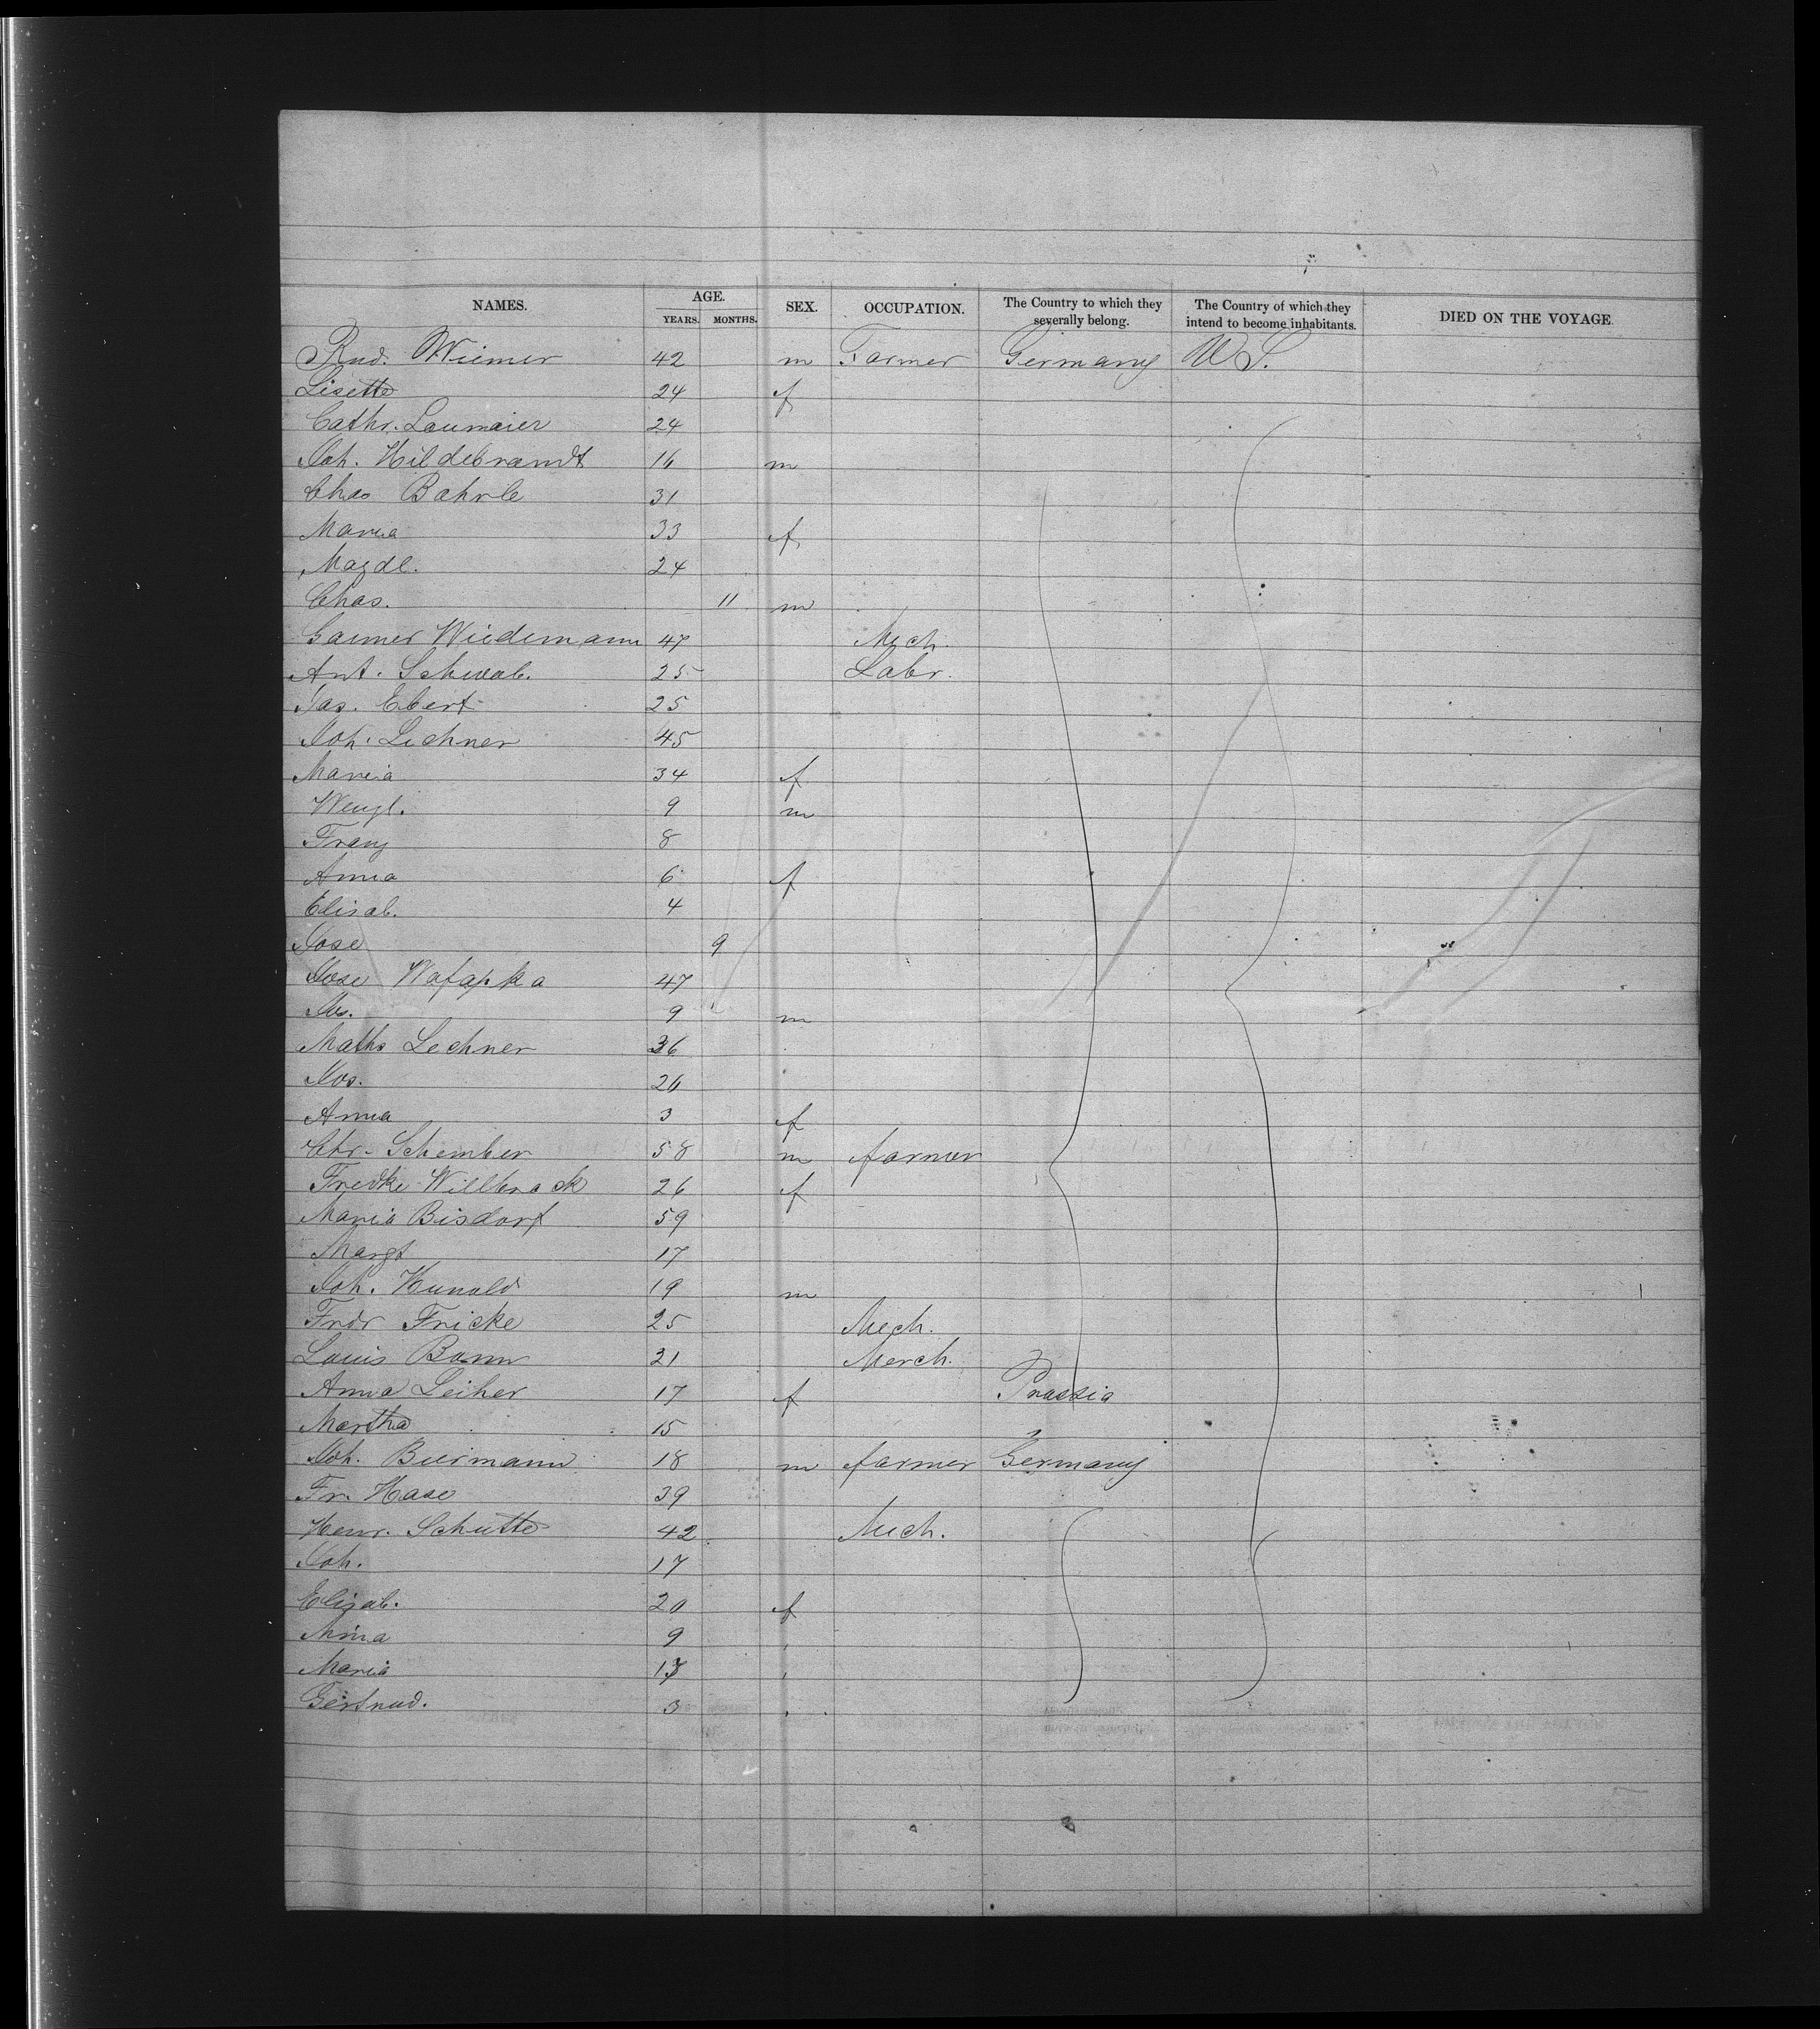 NAMES. AGE. YEARS. MONTHS. SEX. OCCUPATION. The Country to which they severally belong. The Country of which they intend to become inhabitants. DIED ON THE VOYAGE
Rud. Wiemer 42 m Farmer Germany U.S.
Lisette 24 f
Cathr. Laumaier 24
Joh. Hildebrandt 16 m
Chas Bahrle 31
Maria 33 f
Magdl. 24
Chas. 11 m
Wiedemann 47 Mech.
Ant. Schwab. 25 Labr.
Jas. Ebert 25
Joh. Lechner 45
Maria 34 f
Wenzl. 9 m
Franz 8
Anna 6 f
Elisab. 4
Jose 9
Jose Wafapka 47
Jos. 9 m
Maths Lechner 36
Jos. 26
Anna 3 f
Chr. Schember 58 m farmer
Fredke Willbrack 26 f
Maria Bisdorf 59
Margt 17
Joh. Hunold 19 m
Fridr Fricke 25 Mech.
Louis Bann 21 Merch.
Anna Leiher 17 f Prussia
Martha 15
Joh. Buermann 18 m farmer Germany
Fr. Hase 39
Henr. Schutte 42 Mech.
Joh. 17
Elizab. 20 f
Mina 9
Maria 17
Gertrud. 3